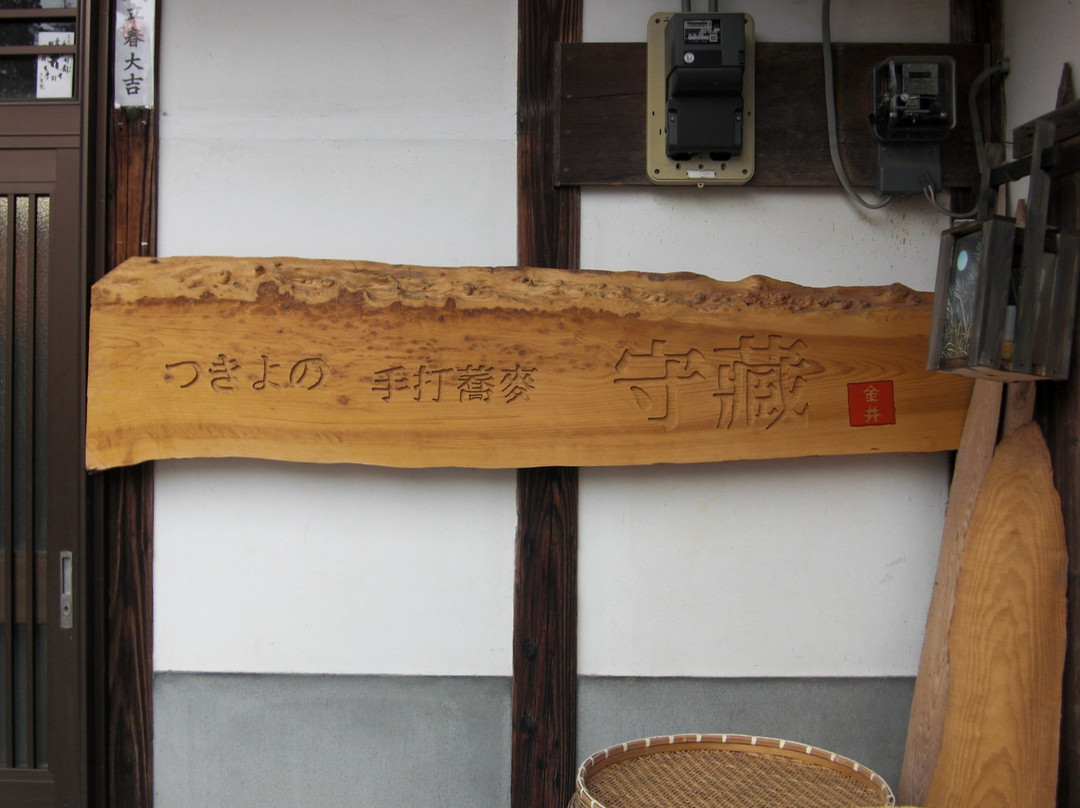 立春大吉
つきよの 手打蕎麥 守藏
金井